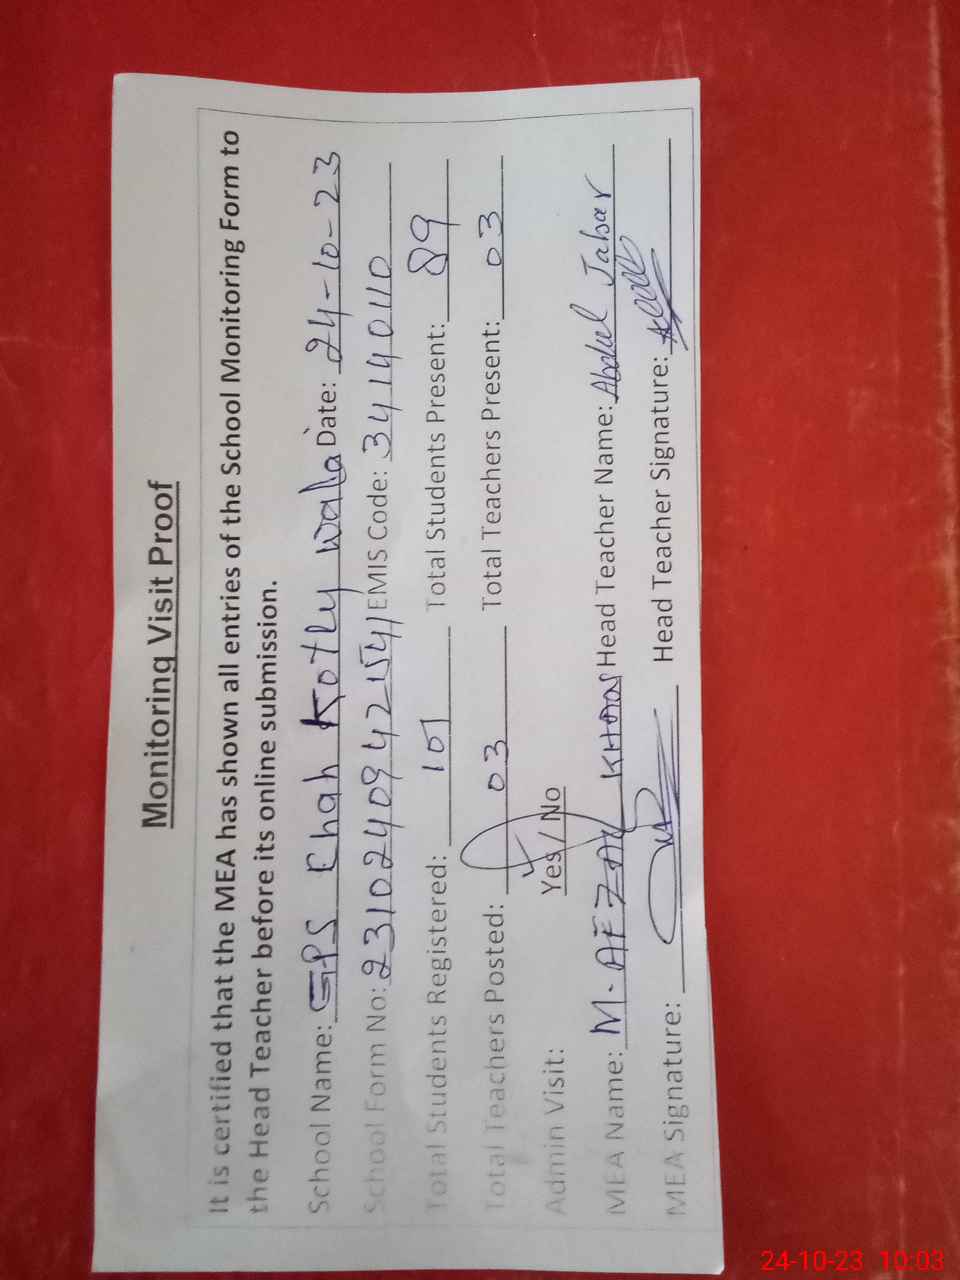 Monitoring Visit Proof
It is certified that the MEA has shown all entries of the School Monitoring Form to
the Head Teacher before its online submission.
School Name: GPS Chah Kotly wala Date: 24-10-23
School Form No: 2310240942154 EMIS Code: 34140110
Total Students Registered: 101 Total Students Present: 89
Total Teachers Posted: 03 Total Teachers Present: 03
Admin Visit: Yes / No
MEA Name: M. AFZAL KHAN Head Teacher Name: Abdul Jabar
MEA Signature: Head Teacher Signature:
24-10-23 10:03